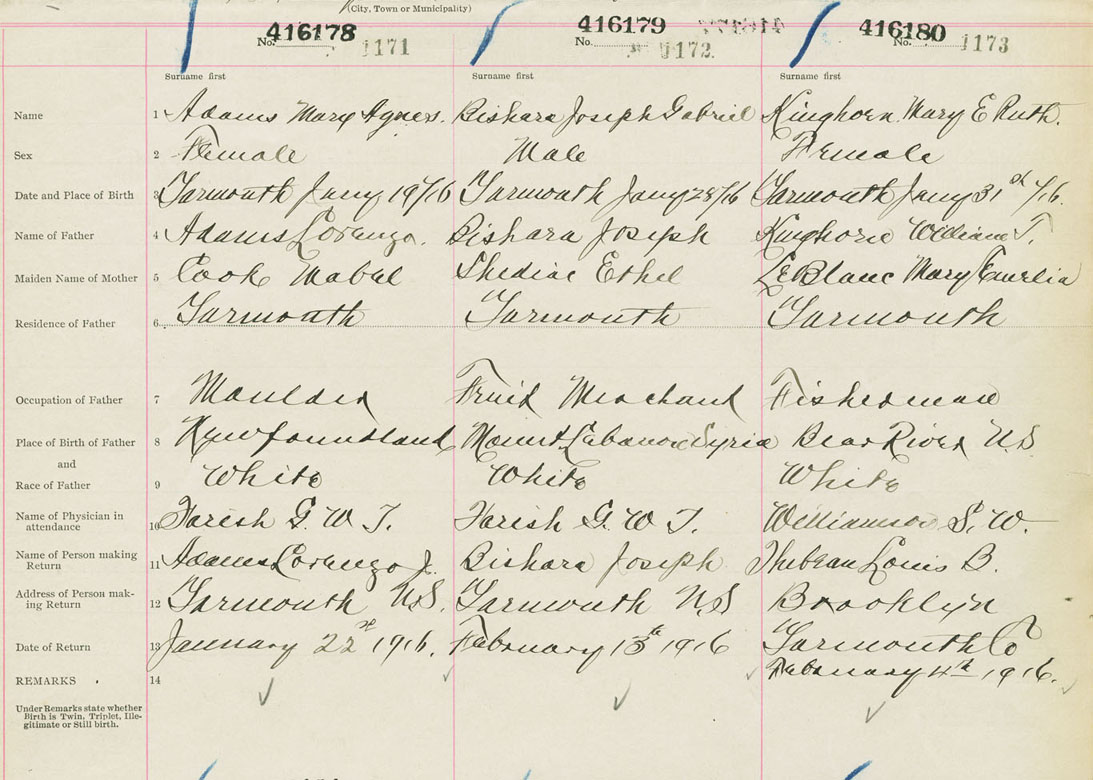 (City, Town or Municipality)
416178 416179 416180
No. 1171 No. 1172 No. 1173
Surname first Surname first Surname first
Name 1 Adams Mary Agnes. Bishara Joseph Gabriel Kinghorn Mary E Ruth.
Sex 2 Female Male Female
Date and Place of Birth 3 Yarmouth Jany 19/16 Yarmouth Jany 28/16 Yarmouth Jany 31st /16.
Name of Father 4 Adams Lorenzo. Bishara Joseph Kinghorn William T.
Maiden Name of Mother 5 Cook Mabel Shediac Ethel LeBlanc Mary Emelia
Residence of Father 6 Yarmouth Yarmouth Yarmouth
Occupation of Father 7 Moulder Fruit Merchant Fisherman
Place of Birth of Father 8 Newfoundland Mount Lebanon Syria Bear River N.S.
and
Race of Father 9 White White White
Name of Physician in
attendance 10 Farish G. W. T. Farish G. W T. Williamson S. W.
Name of Person making
Return 11 Adams Lorenzo J. Bishara Joseph Thibeau Louis B.
Address of Person mak-
ing Return 12 Yarmouth N.S. Yarmouth N.S Brooklyn
Date of Return 13 January 22nd 1916. February 13th 1916 Yarmouth Co
February 4th 1916.
REMARKS 14
Under Remarks state whether
Birth is Twin, Triplet, Ille-
gitimate or Still birth.